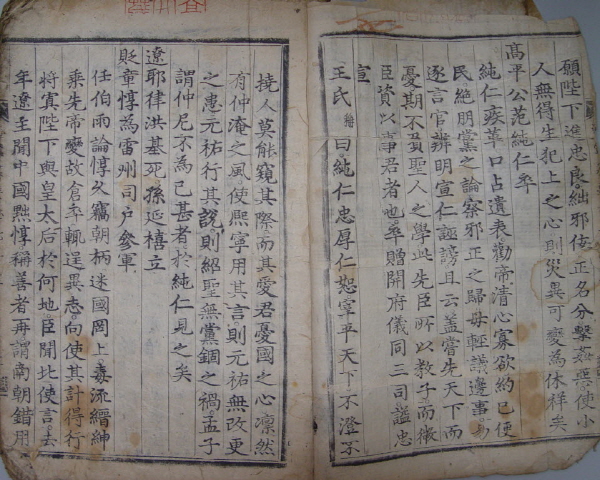 願陛下進忠良絀邪佞正名分擊姦惡使小
人無得生犯上之心則災異可變為休祥矣
高平公范純仁卒
純仁疾革口占遺表勸帝清心寡欲約己便
民絶朋黨之論察邪正之歸毋輕議邊事易
逐言官辨明宣仁誣謗且云盖嘗先天下而
憂期不負聖人之學此先臣所以教子而微
臣資以事君者也卒贈開府儀同三司謚忠
宣
王氏曰純仁忠厚仁恕宰平天下不澄不
撓人莫能窺其際而其愛君憂國之心凛然
有仲淹之風使熙寧用其言則元祐無改更
之患元祐行其說則紹聖無黨錮之禍孟子
謂仲尼不為已甚者於純仁見之矣
遼耶律洪基死孫延禧立
貶章惇為雷州司戶參軍
任伯雨論惇久竊朝柄迷國罔上毒流縉紳
乘先帝變故倉卒輒逞異志向使其計得行
將寘陛下與皇太后於何地臣聞北使言去
年遼主聞中國黜惇稱善者再謂南朝錯用